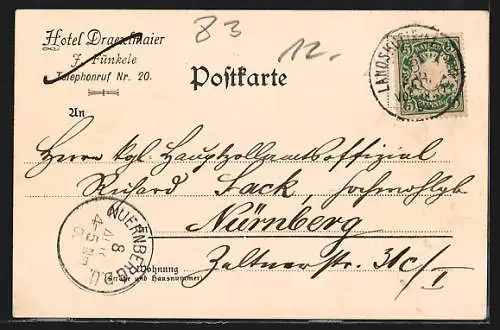 Hotel Draexlmaier
J. Fünkele
Telephonruf Nr. 20.
83
12.
Postkarte
BAYERN
LANDSH
An
Herrn kgl. Hauptzollamtsoffizial
Richard Sack, hochwohlgb.
Nürnberg
Zeltnerstr. 31c/I
NUERNBERG
8
Wohnung
(Straße und Hausnummer)